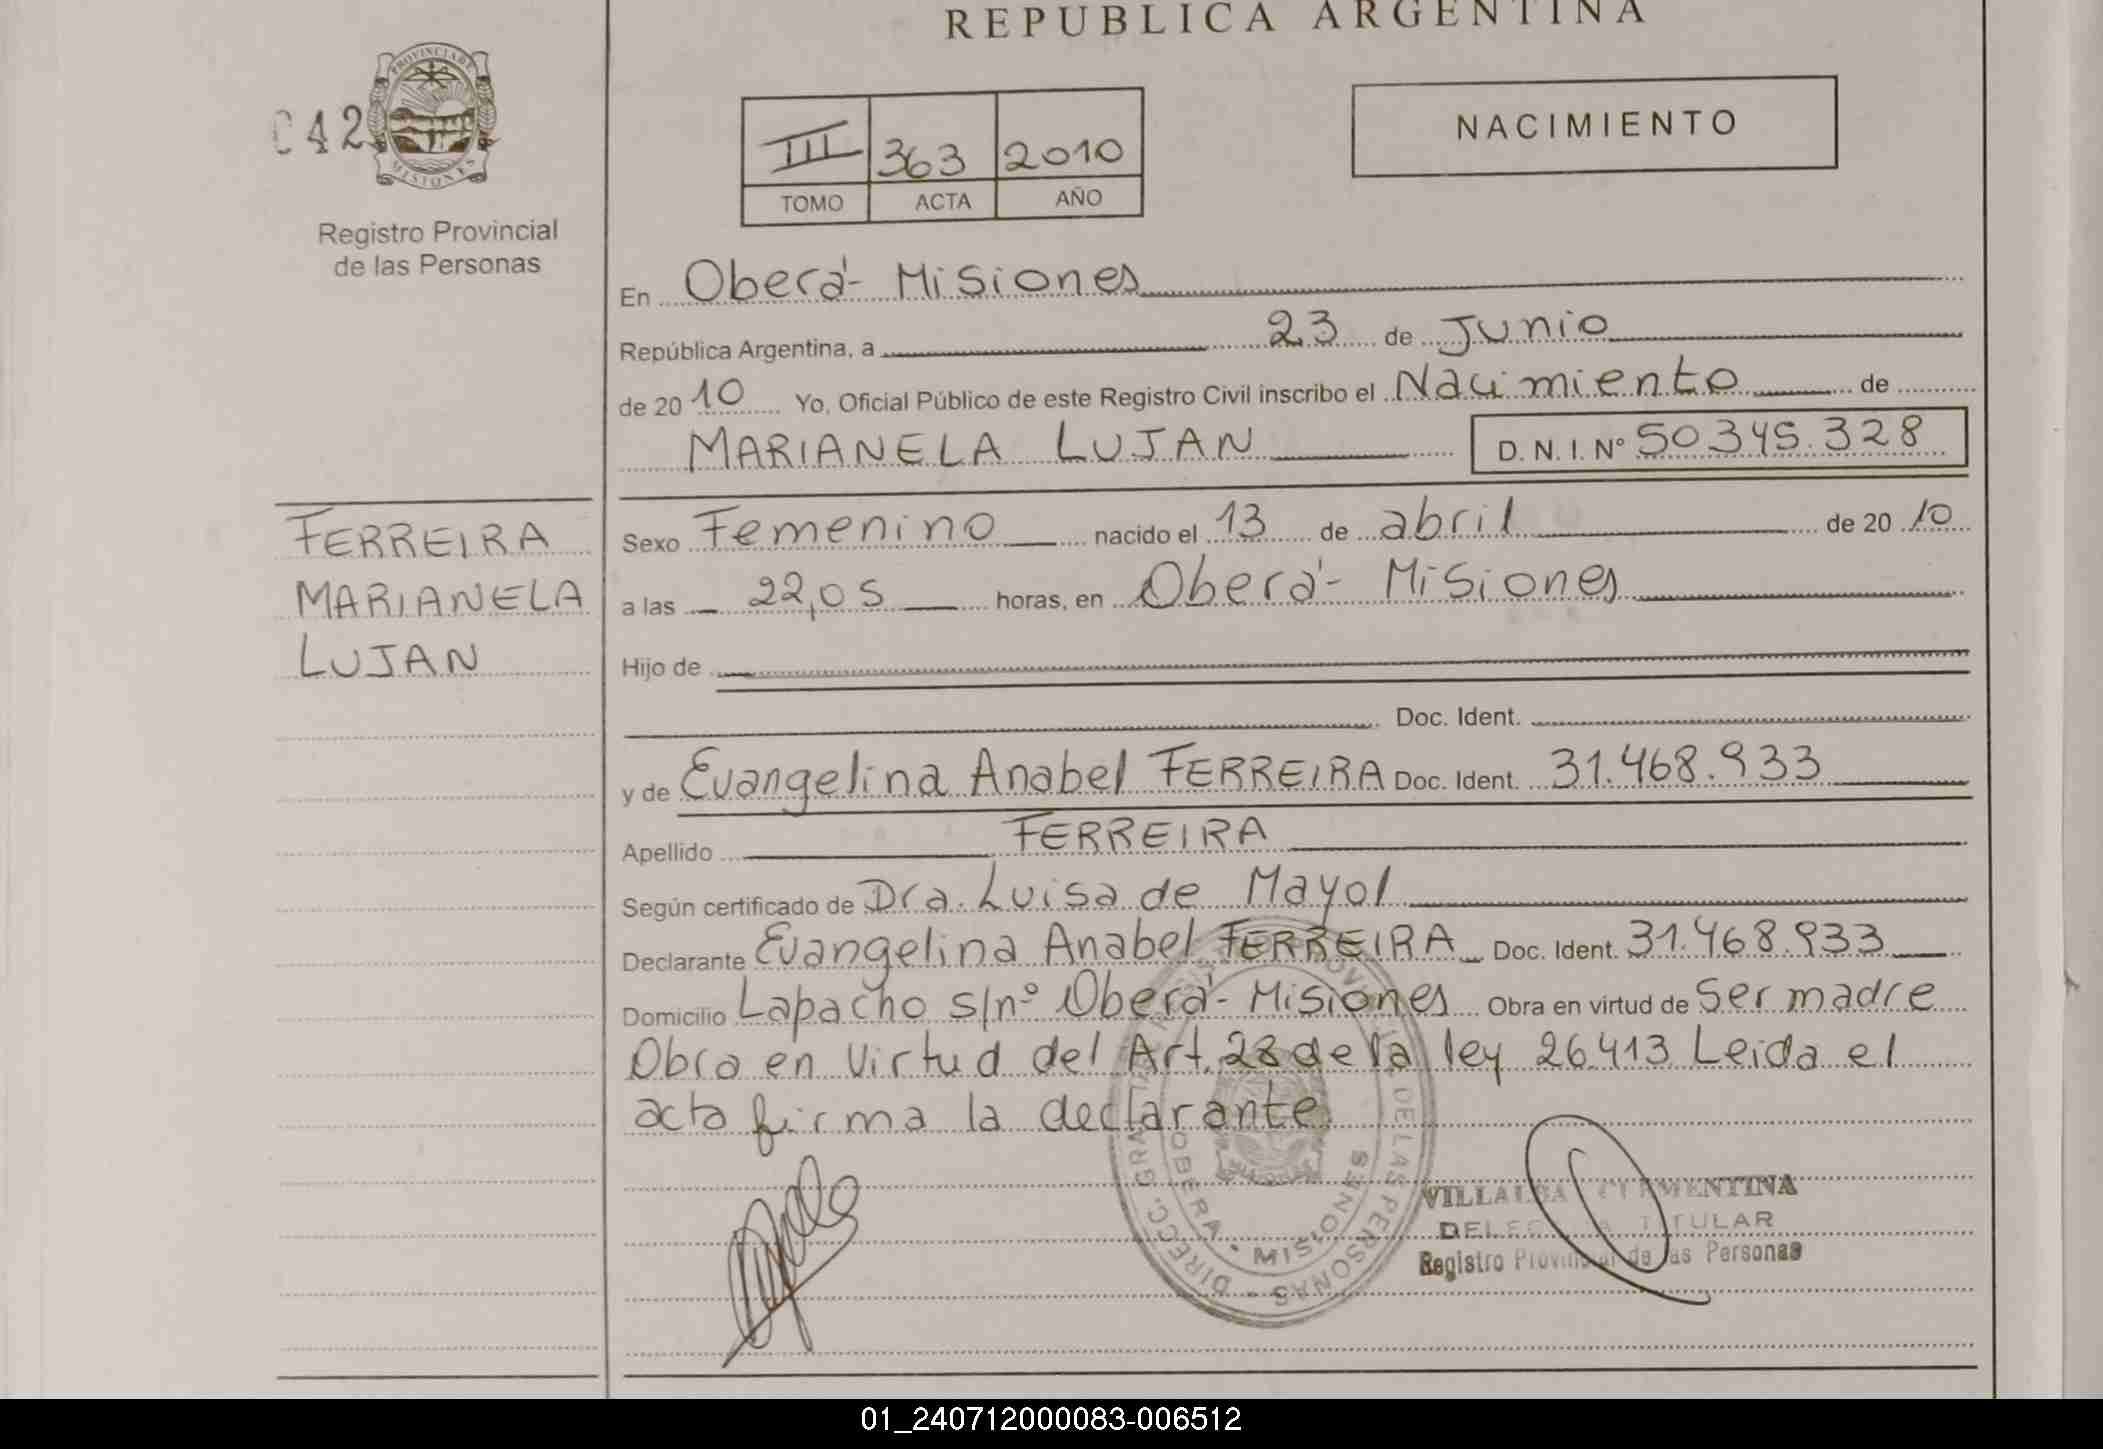 REPUBLICA ARGENTINA
PROVINCIA DE
MISIONES
C42
Registro Provincial
de las Personas
III 363 2010
TOMO ACTA AÑO
NACIMIENTO
En Oberá - Misiones
República Argentina, a 23 de Junio
de 2010 Yo, Oficial Público de este Registro Civil inscribo el Nacimiento de
MARIANELA LUJAN D.N.I.Nº 50.345.328
FERREIRA
MARIANELA
LUJAN
Sexo Femenino nacido el 13 de abril de 2010
a las 22,05 horas, en Oberá - Misiones
Hijo de
Doc. Ident.
y de Evangelina Anabel FERREIRA Doc. Ident. 31.468.933
Apellido FERREIRA
Según certificado de Dra. Luisa de Mayol
Declarante Evangelina Anabel FERREIRA Doc. Ident. 31.468.933
Domicilio Lapacho s/nº Oberá - Misiones Obra en virtud de Ser madre
Obra en Virtud del Art. 28 de la ley 26.413 Leida el
acta firma la declarante
DE LAS PERSONAS
OBERA - MISIONES
VILLALBA CLEMENTINA
DELEGADA TITULAR
Registro Provincial de las Personas
01_240712000083-006512